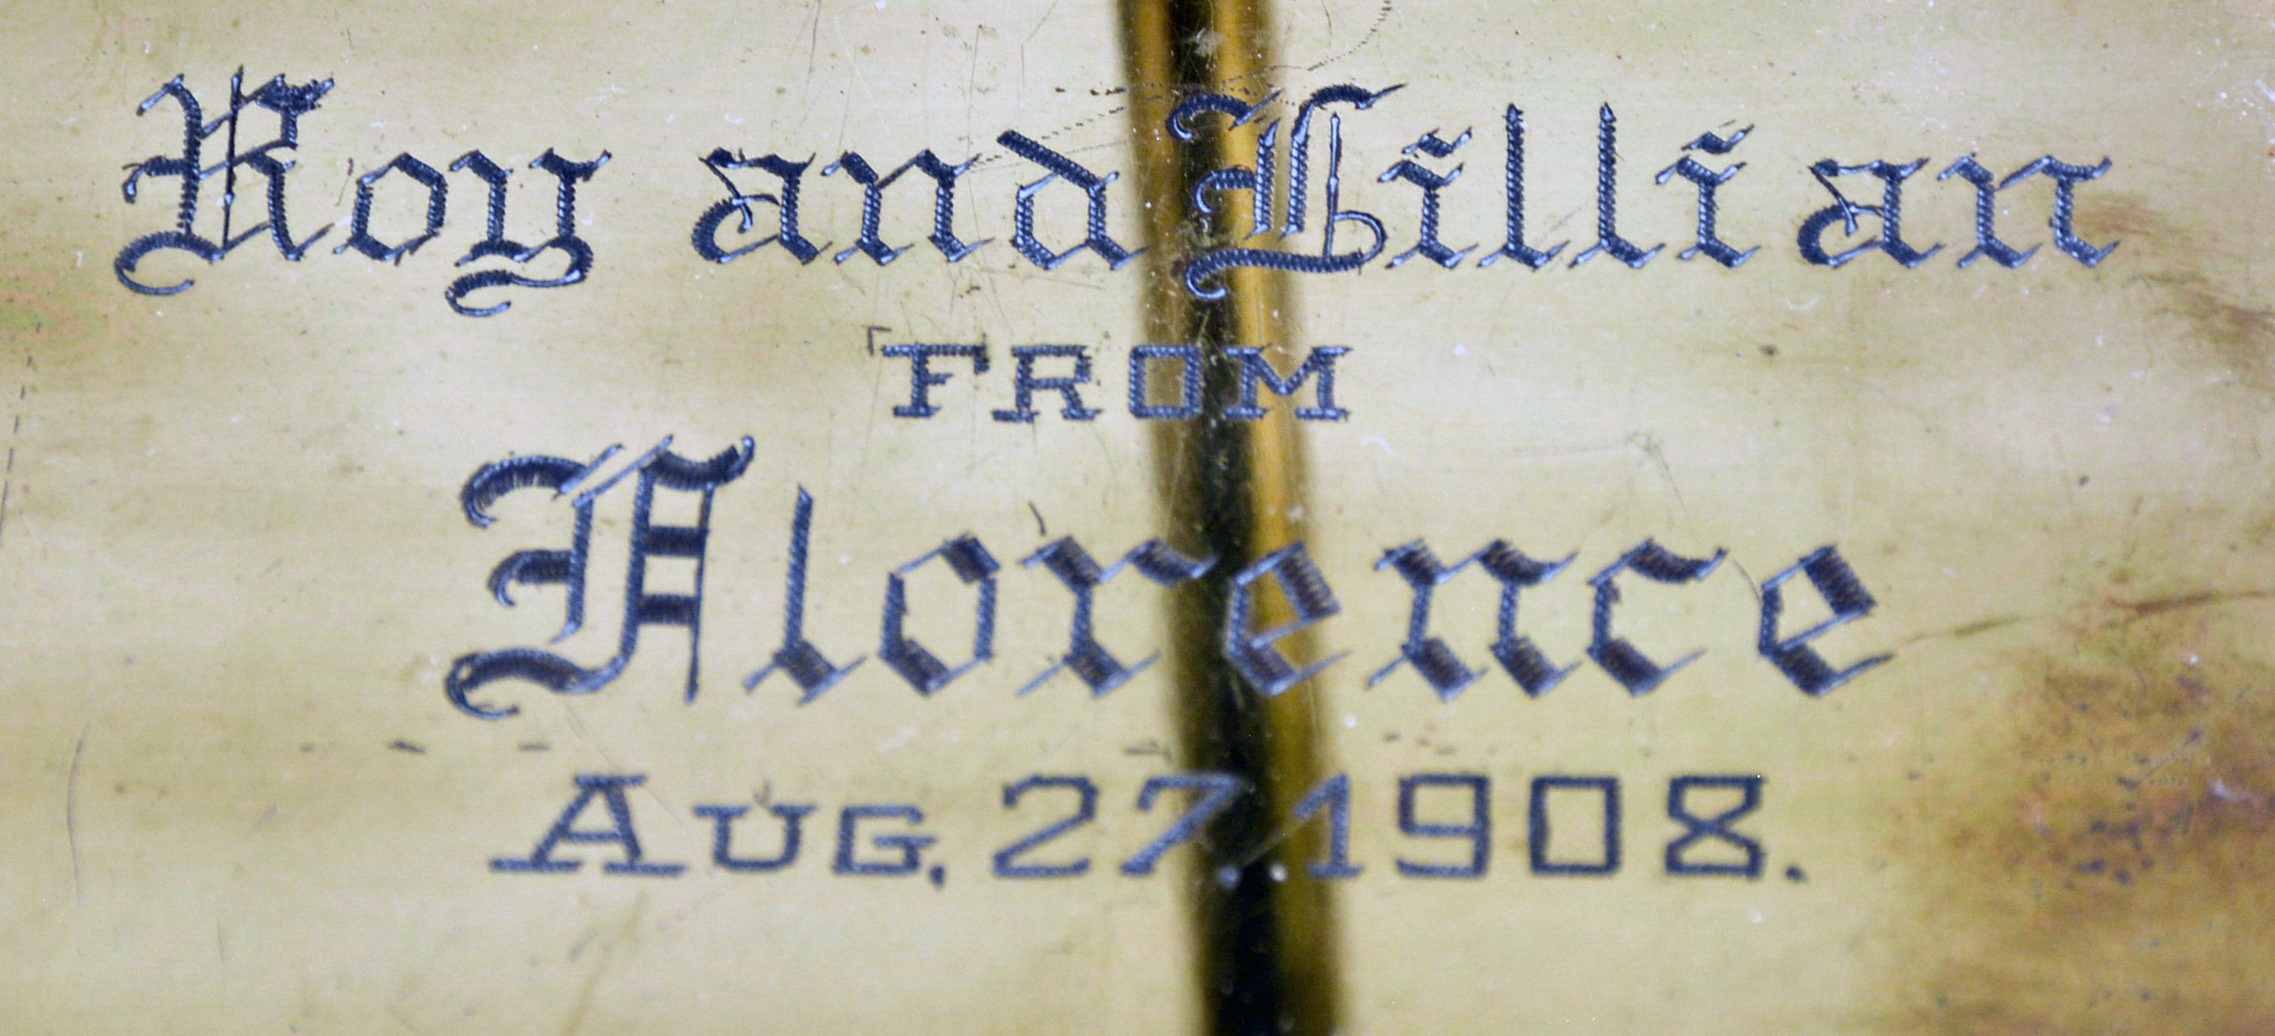 Roy and Lillian
FROM
Florence
AUG. 27. 1908.